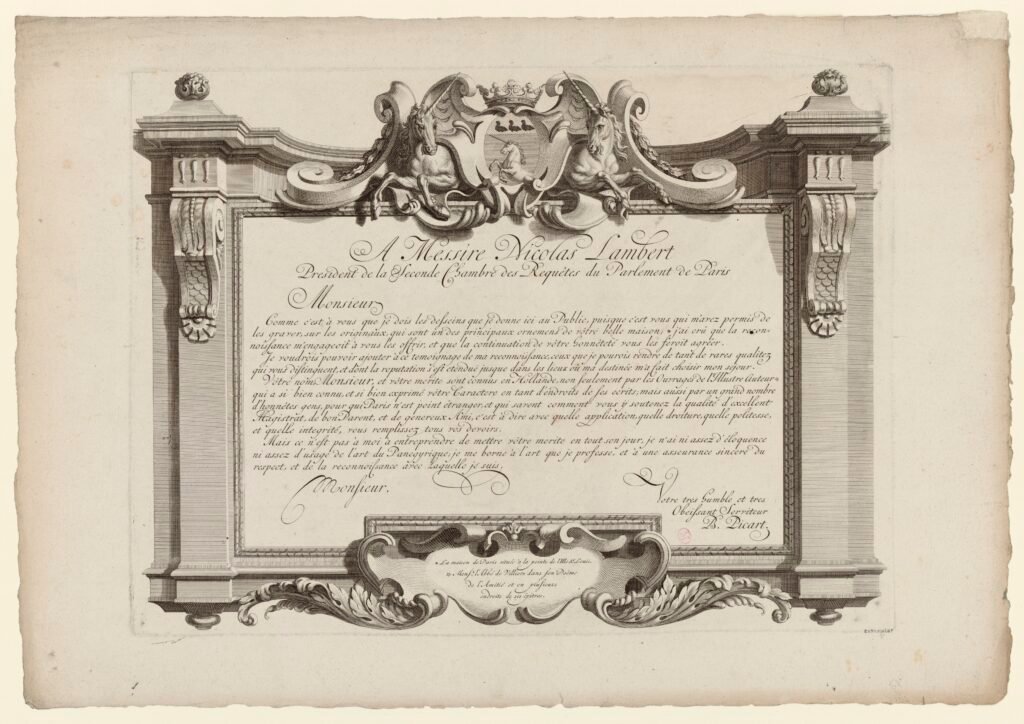 A Messire Nicolas Lambert
President de la Seconde Chambre des Requêtes du Parlement de Paris
Monsieur
Comme c'est à vous que je dois les desseins que je donne ici au Public, puisque c'est vous qui m'avez permis de
les graver, sur les originaux, qui sont un des principaux ornemens de vôtre belle maison, j'ai crû que la recon-
noissance m'engageoit à vous les offrir, et que la continuation de vôtre honnêteté vous les feroit agréer.
Je voudrois pouvoir ajouter à ce temoignage de ma reconnoissance, ceux que je pourois rendre de tant de rares qualitez
qui vous distinguent, et dont la reputation s'est etendue jusque dans les lieux où ma destinée m'a fait choisir mon sejour.
Vôtre nom, Monsieur, et vôtre merite sont connus en Hollande, non seulement par les Ouvrages de l'Illustre Auteur
qui a si bien connu, et si bien exprimé vôtre Caractere en tant d'endroits de ses ecrits; mais aussi par un grand nombre
d'honnêtes gens, pour qui Paris n'est point étranger, et qui savent comment vous y soutenez la qualité d'excellent
Magistrat, de bon Parent, et de genereux Ami, c'est à dire avec quelle application, quelle droiture, quelle politesse,
et quelle integrité, vous remplissez tous vos devoirs.
Mais ce n'est pas à moi à entreprendre de mettre vôtre merite en tout son jour, je n'ai ni assez d'éloquence
ni assez d'usage de l'art du Panegyrique, je me borne à l'art que je professe, et à une asseurance sincere du
respect, et de la reconnoissance avec laquelle je suis,
Monsieur.
Votre tres humble et tres
Obeissant Serviteur
B. Picart
La maison de Paris située à la pointe de l'Ile St. Louis.
Monsr. l'Abbé de Villiers dans son Poëme
de l'Amitié et en plusieurs
endroits de ses epitres.